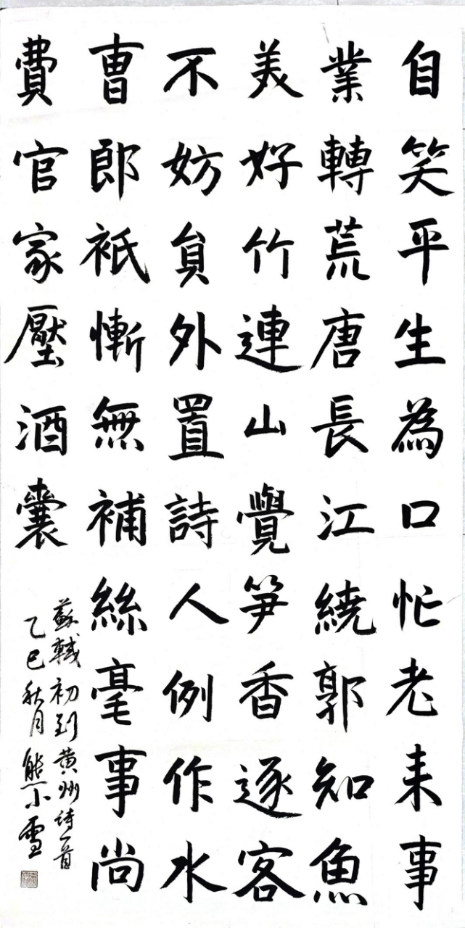 自笑平生為口忙老来事
業轉荒唐長江繞郭知魚
美好竹連山覺筍香逐客
不妨員外置詩人例作水
曹郎衹慚無補絲毫事尚
費官家壓酒囊
蘇軾初到黄州诗一首
乙巳秋月熊小雪